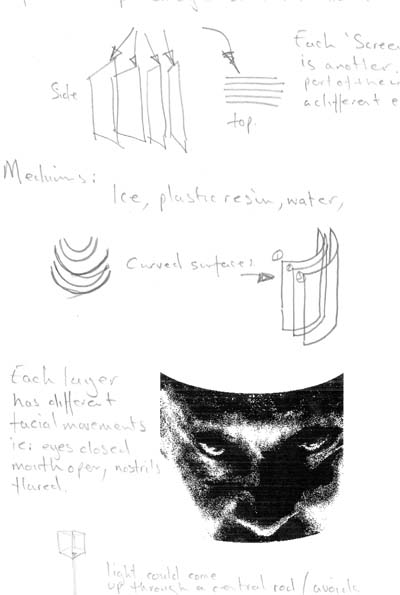 Each 'Screen
is another
part of the i
a different e
Side
top.
Mediums:
Ice, plastic resin, water,
Curved surfaces
1
2
3
Each layer
has different
facial movements
ie: eyes closed
mouth open, nostrils
flared.
light could come
up through a central rod /